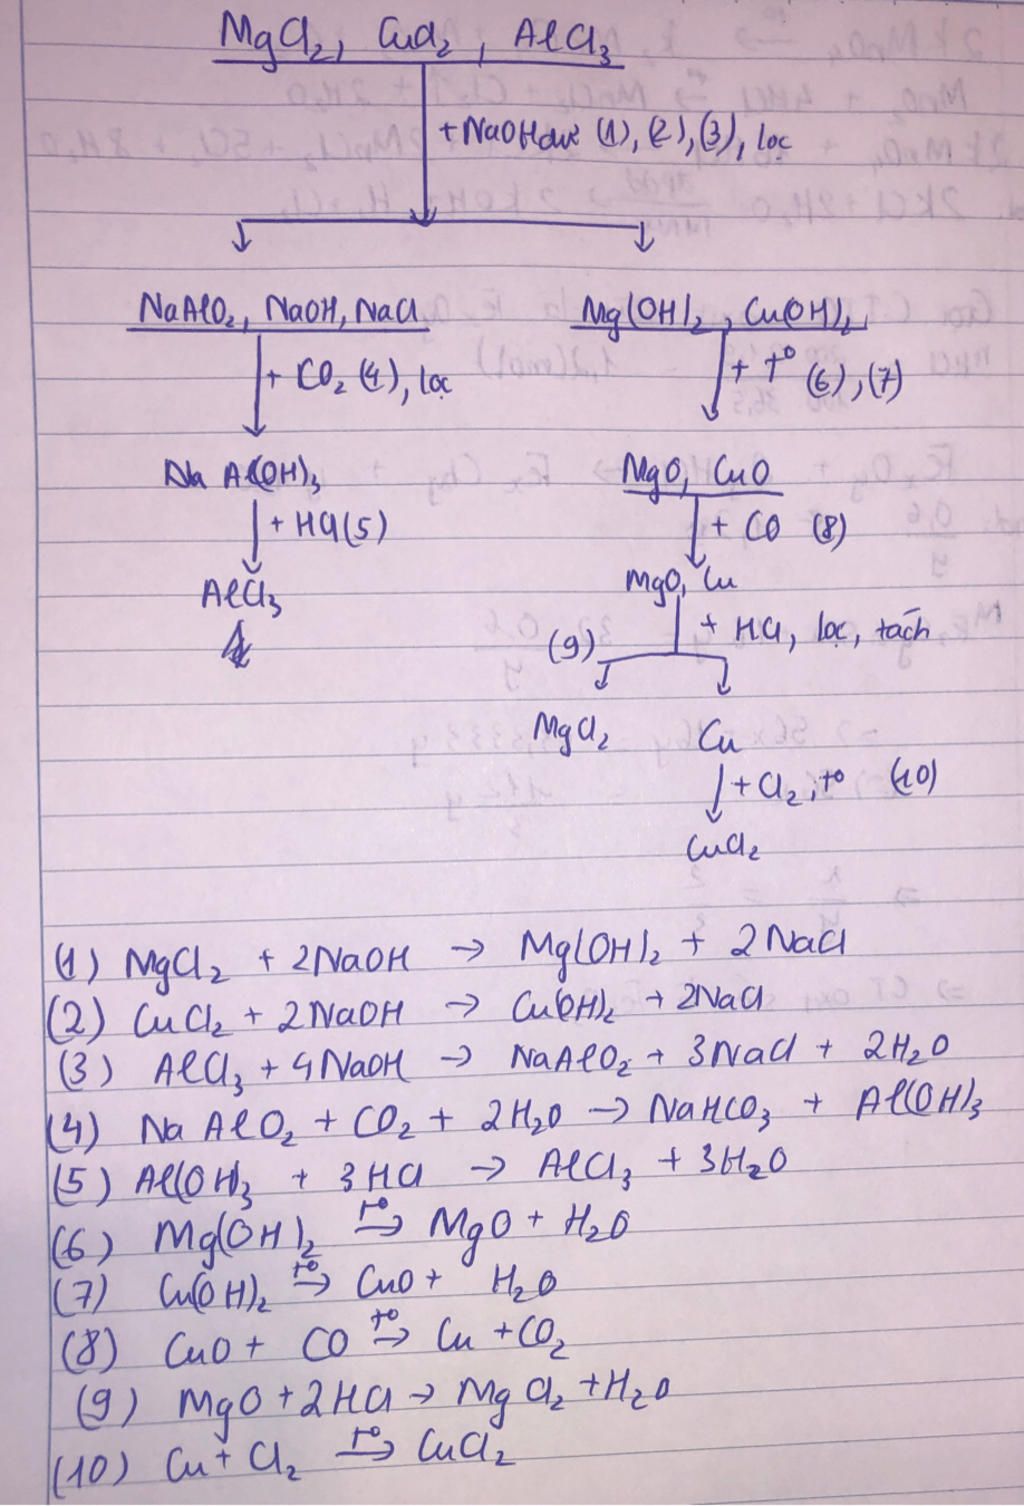 MgCl₂, CuCl₂, AlCl₃
+ NaOH dư (1), (2), (3), lọc
NaAlO₂, NaOH, NaCl
Mg(OH)₂, Cu(OH)₂
+ CO₂ (4), lọc
+ t° (6), (7)
Na Al(OH)₃
MgO, CuO
+ HCl (5)
+ CO (8)
AlCl₃
MgO, Cu
(9)
+ HCl, lọc, tách
MgCl₂
Cu
+ Cl₂, t° (10)
CuCl₂
(1) MgCl₂ + 2NaOH → Mg(OH)₂ + 2NaCl
(2) CuCl₂ + 2NaOH → Cu(OH)₂ + 2NaCl
(3) AlCl₃ + 4NaOH → NaAlO₂ + 3NaCl + 2H₂O
(4) NaAlO₂ + CO₂ + 2H₂O → NaHCO₃ + Al(OH)₃
(5) Al(OH)₃ + 3HCl → AlCl₃ + 3H₂O
(6) Mg(OH)₂ t°→ MgO + H₂O
(7) Cu(OH)₂ t°→ CuO + H₂O
(8) CuO + CO t°→ Cu + CO₂
(9) MgO + 2HCl → MgCl₂ + H₂O
(10) Cu + Cl₂ t°→ CuCl₂